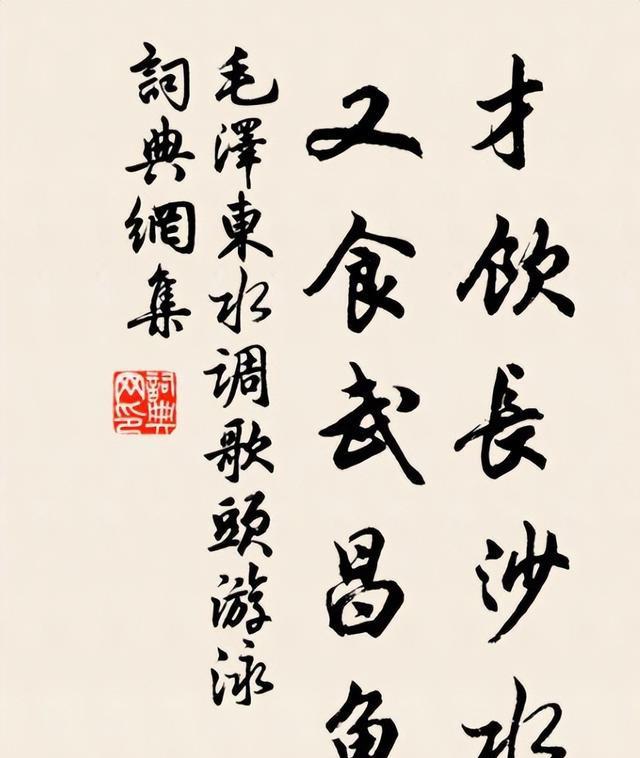 才飲長沙水
又食武昌魚
毛澤東水調歌頭游泳
詞典網集
詞典
网印